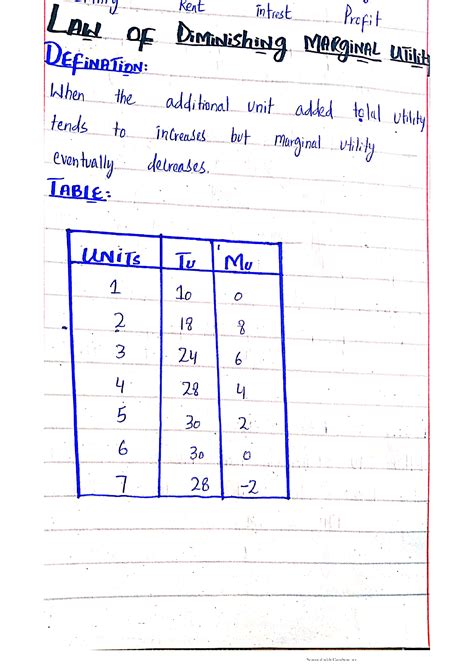 Rent Intrest Profit
LAW OF DIMINISHING MARGINAL UTILITY
DEFINATION:
When the additional unit added total utility
tends to increases but marginal utility
eventually decreases.
TABLE:
UNITS TU MU
1 10 0
2 18 8
3 24 6
4 28 4
5 30 2
6 30 0
7 28 -2